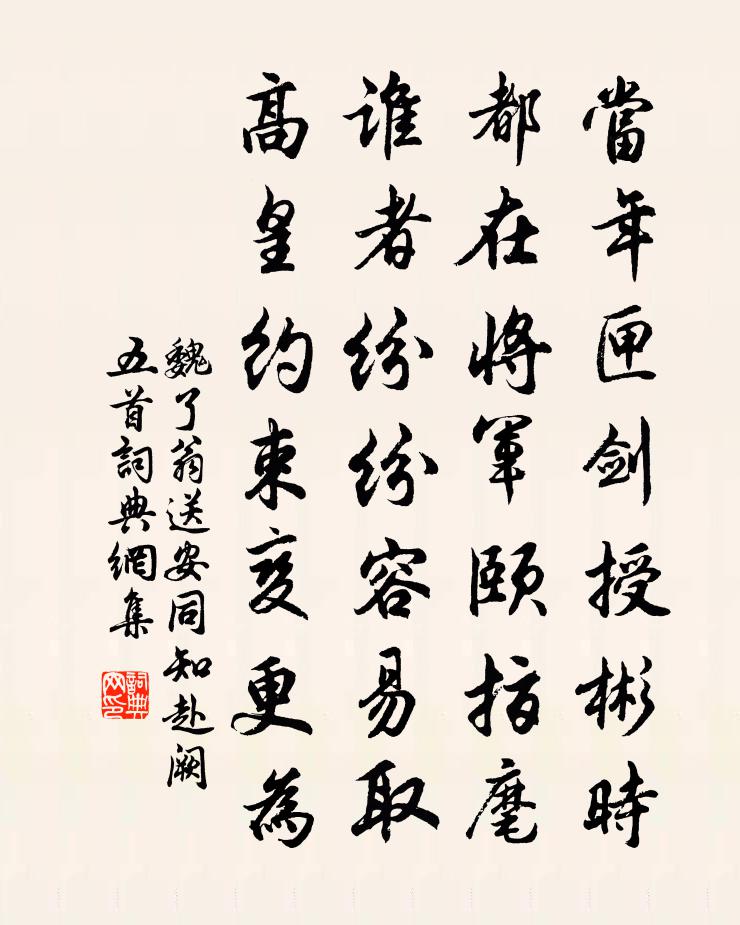 當年匣劍授彬時
都在將軍頤指麾
誰者紛紛容易取
高皇約束變更為
魏了翁送安同知赴闕
五首詞典網集
詞典網印